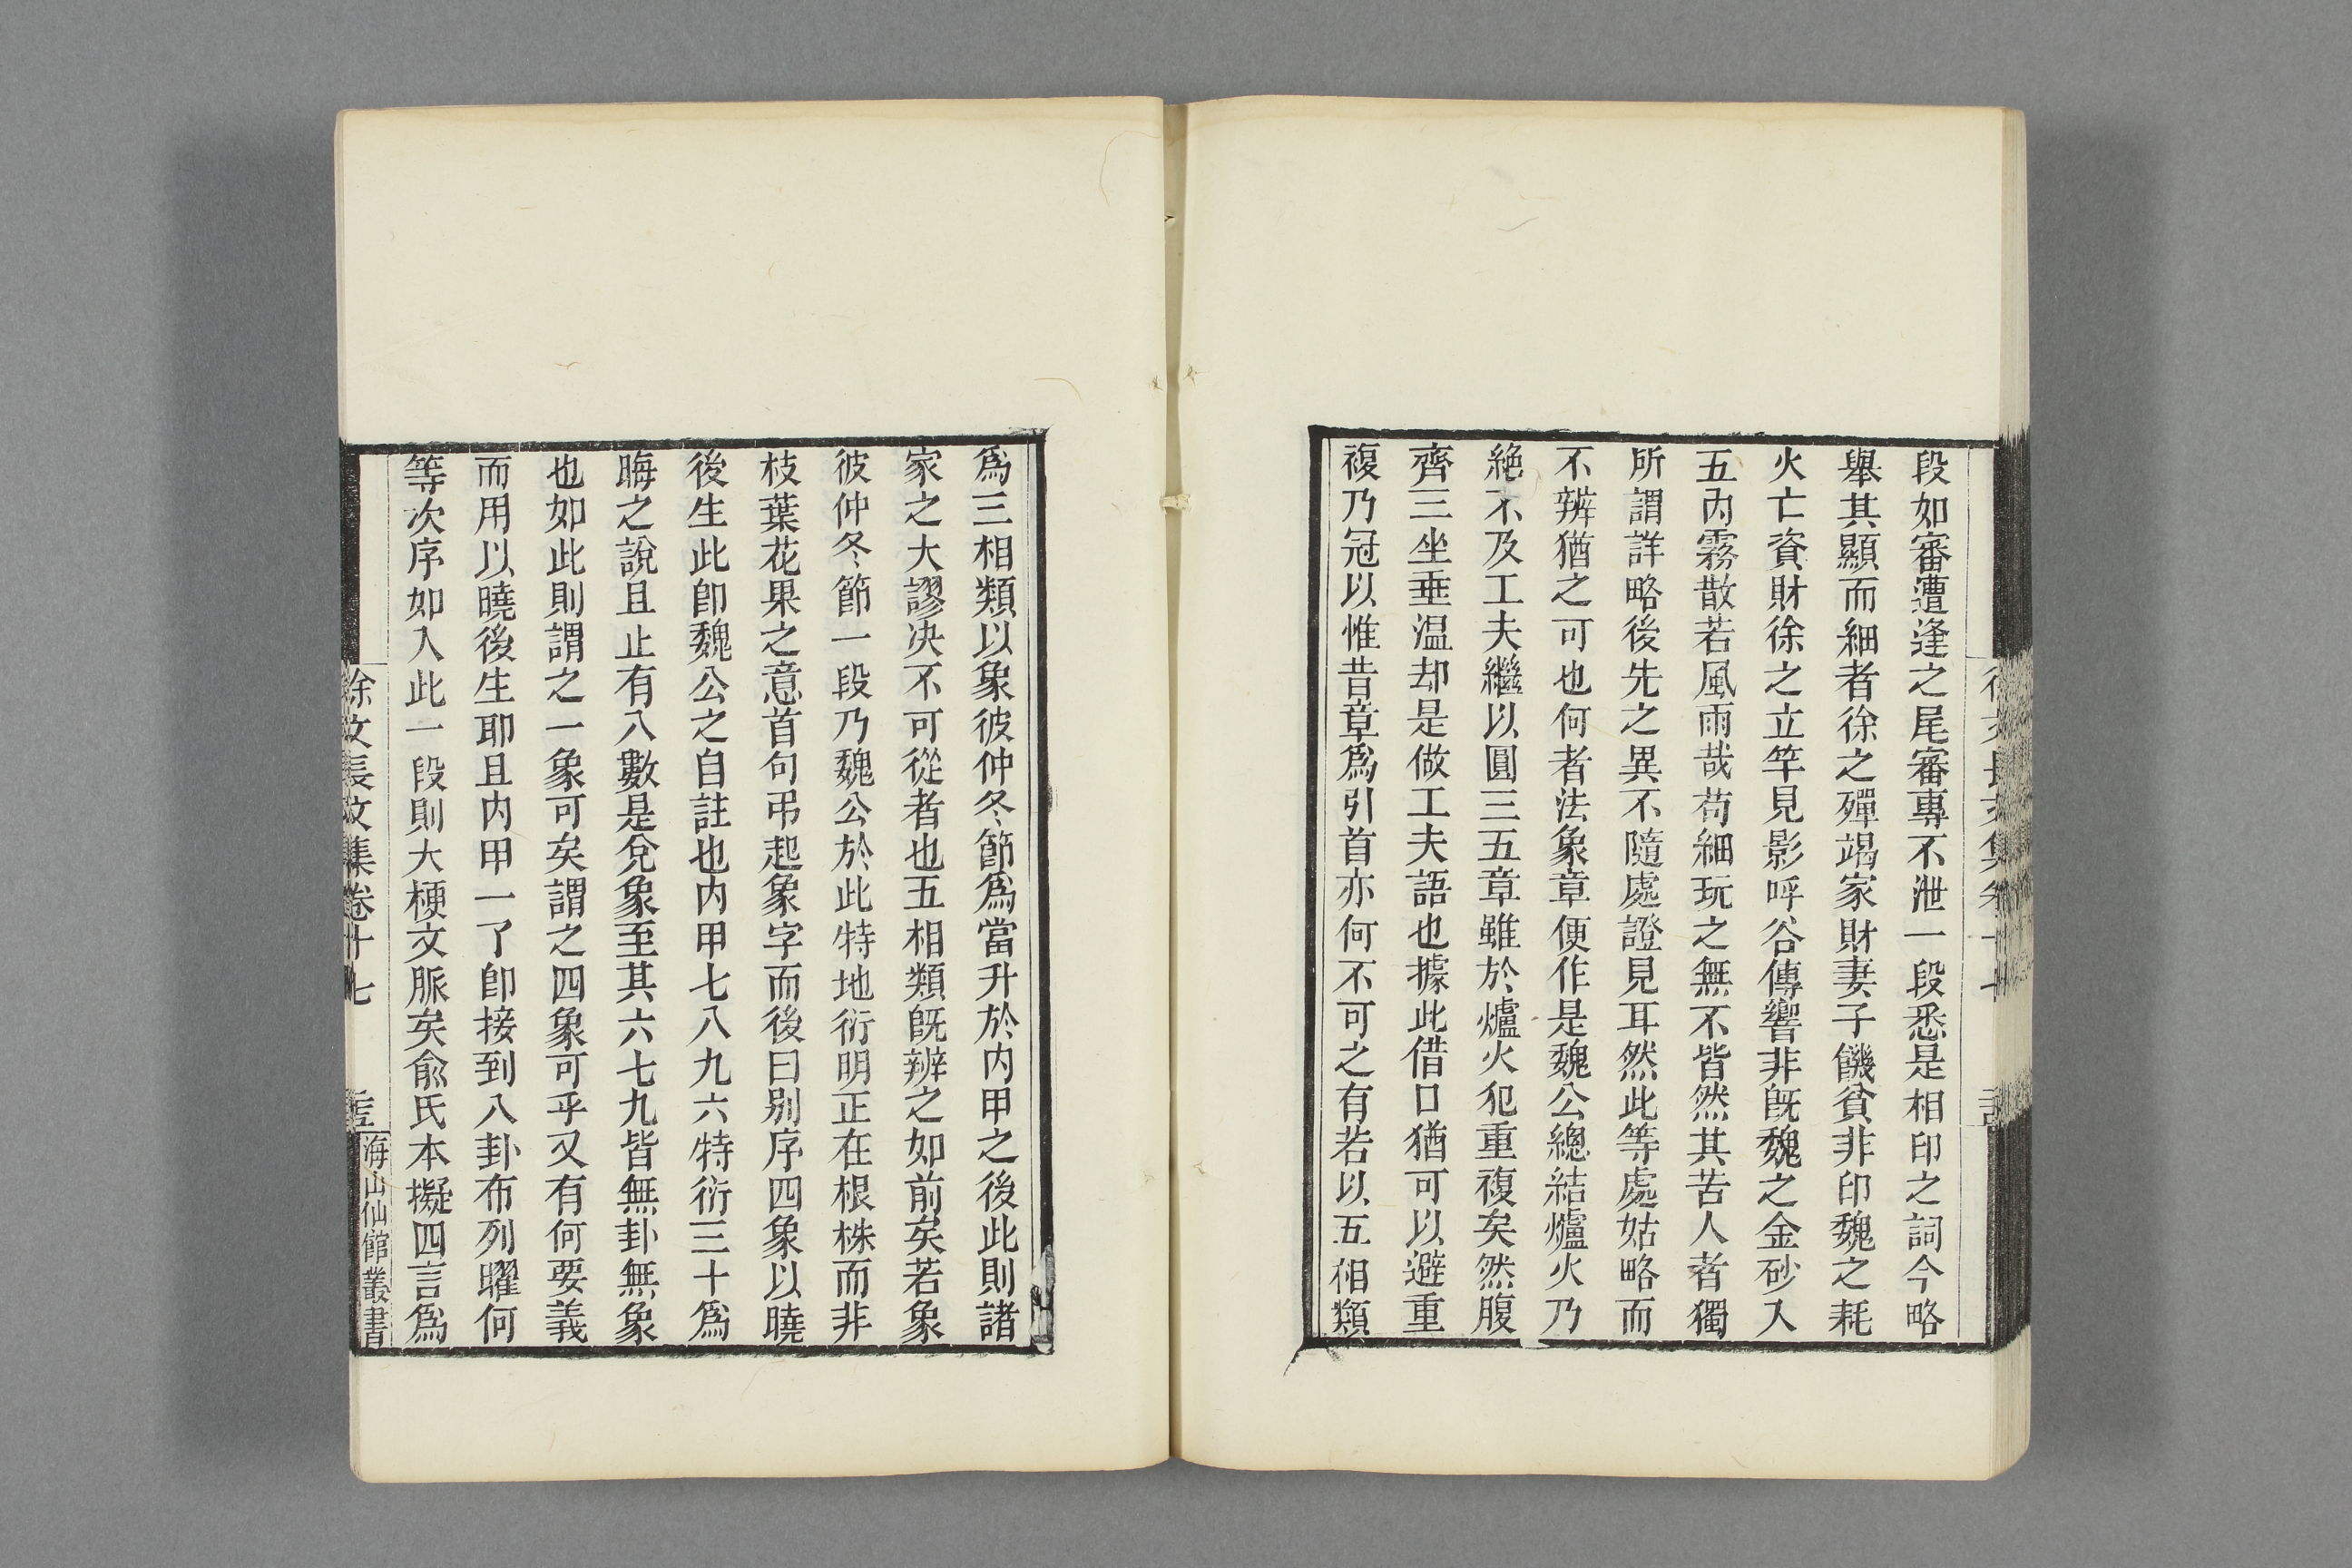 段如審遭逢之尾審專不泄一段悉是相印之詞今略
舉其顯而細者徐之殫竭家財妻子饑貧非印魏之耗
火亡資財徐之立竿見影呼谷傳響非旣魏之金砂入
五內霧散若風雨哉苟細玩之無不皆然其苦人者獨
所謂詳略後先之異不隨處證見耳然此等處姑略而
不辨猶之可也何者法象章便作是魏公總結爐火乃
絶不及工夫繼以圓三五章雖於爐火犯重複矣然腹
齊三坐垂溫却是做工夫語也據此借口猶可以避重
複乃冠以惟昔章爲引首亦何不可之有若以五相類
爲三相類以象彼仲冬節爲當升於內甲之後此則諸
家之大謬决不可從者也五相類旣辨之如前矣若象
彼仲冬節一段乃魏公於此特地衍明正在根株而非
枝葉花果之意首句弔起象字而後曰别序四象以曉
後生此卽魏公之自註也內甲七八九六特衍三十爲
晦之說且止有八數是兌象至其六七九皆無卦無象
也如此則謂之一象可矣謂之四象可乎又有何要義
而用以曉後生耶且內甲一了卽接到八卦布列曜何
等次序如入此一段則大梗文脈矣俞氏本擬四言爲
徐文長文集卷十七
海山仙館叢書